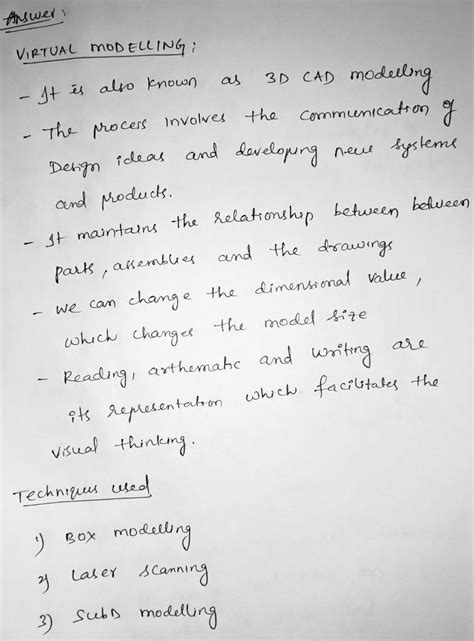 Answer:
VIRTUAL MODELLING:
- It is also known as 3D CAD modelling
- The process involves the communication of
Design ideas and developing new systems
and products.
- It maintains the relationship between between
parts, assemblies and the drawings
- we can change the dimensional value,
which changes the model size
- Reading, arthematic and writing are
its representation which facilitates the
visual thinking.
Techniques used
1) BOX modelling
2) Laser scanning
3) SubD modelling